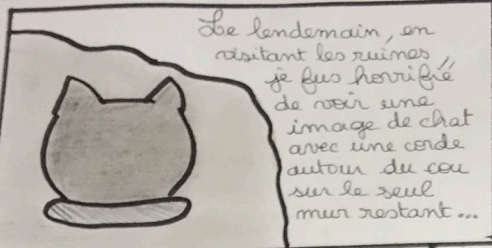 Le lendemain, en
visitant les ruines,
je fus horrifié
de voir une
image de chat
avec une corde
autour du cou
sur le seul
mur restant...